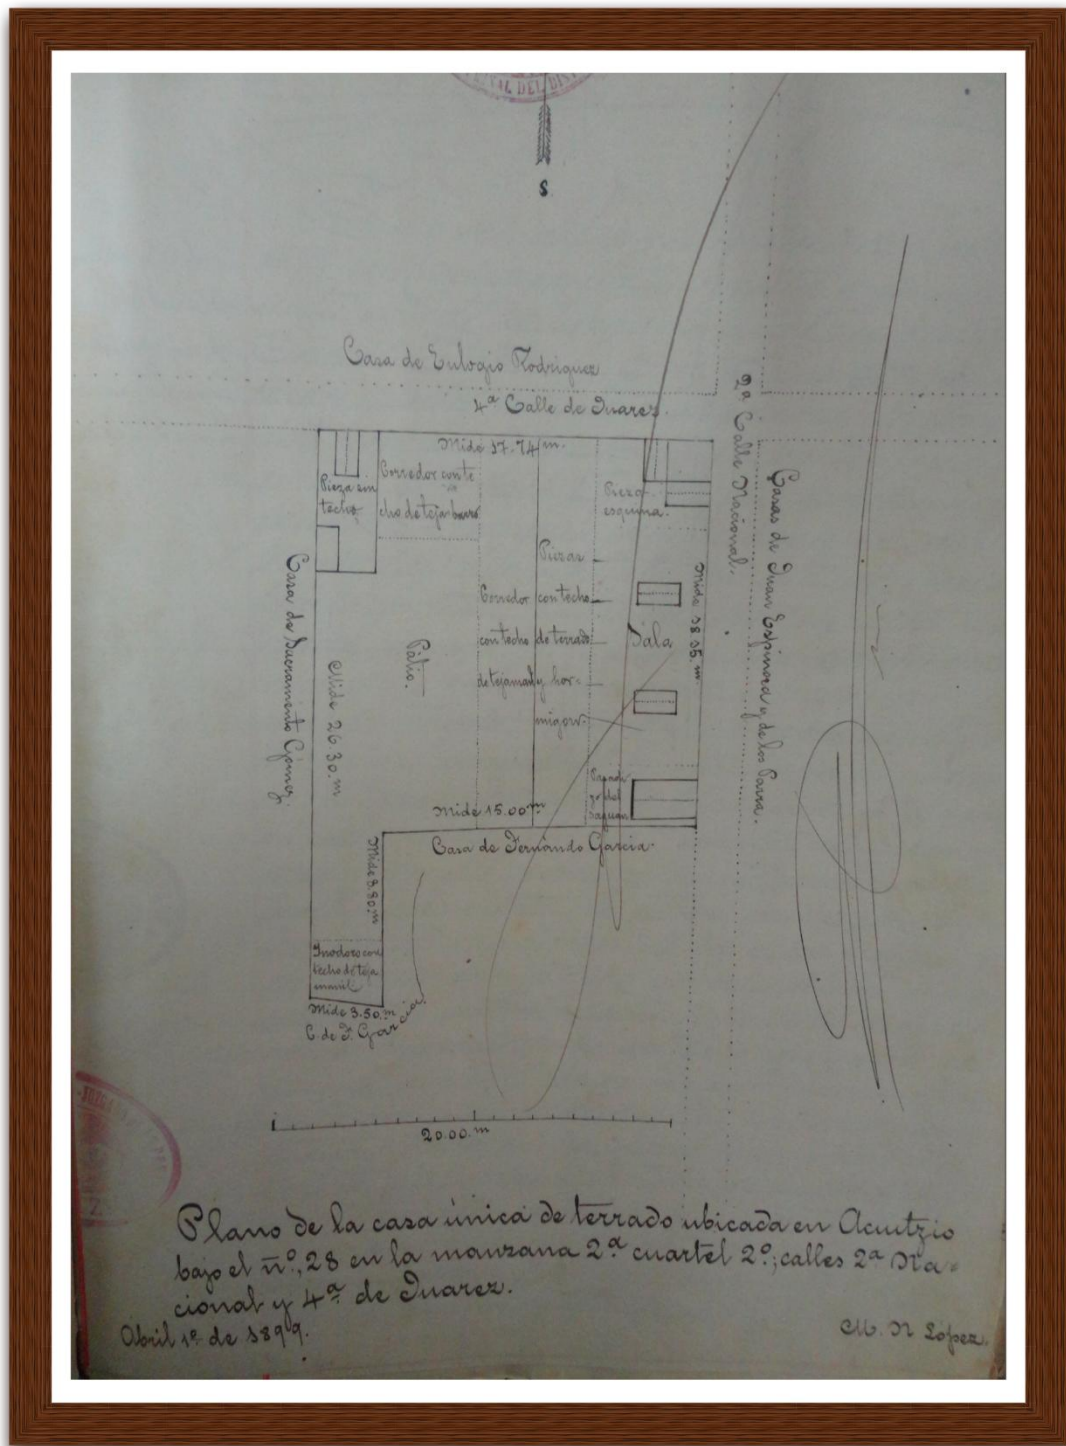 S.
Casa de Eulogio Rodriguez
4ª Calle de Juarez.
2ª Calle Nacional.
Casas de Juan Espinosa y de los Parra.
Mide 17.74 m.
Pieza sin
techo
Corredor con te
cho de teja barro
Pieza
esquina.
Piezas
con techo
de terrado
y hor=
migon.
Corredor
con techo
de tejamanl
Sala
Mide 18 35. m.
Pátio.
Casa de Sacramento Gomez.
Mide 26.30. m
Mide 15.00 m
del
saguan
Casa de Fernando Garcia.
Mide 8.80 m
Inodoro con
techo de teja
manil
Mide 3.50. m
C. de F. Garcia.
20.00. m
Plano de la casa única de terrado ubicada en Acuitzio
bajo el nº, 28 en la manzana 2ª cuartel 2º; calles 2ª Na=
cional y 4ª de Juarez.
Abril 1º de 1899.
M. N Lopez.